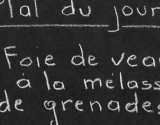 Plat du jour
Foie de veau
à la mélasse
de grenades